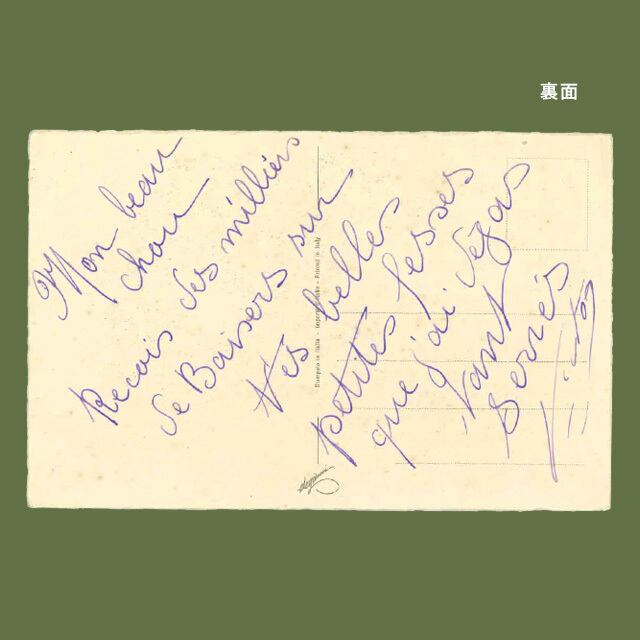 裏面
Mon beau
chou
Recois des milliers
de Baisers sur
tes belles
petites fesses
que j'ai déjas
tant
serrés
Stampato in Italia - Importé d'Italie - Printed in Italy